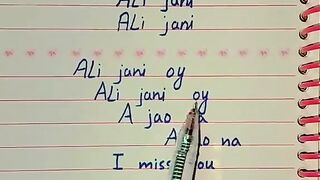 ALi jani
ALi jani
ALi jani oy
ALi jani oy
A jao
na
I miss